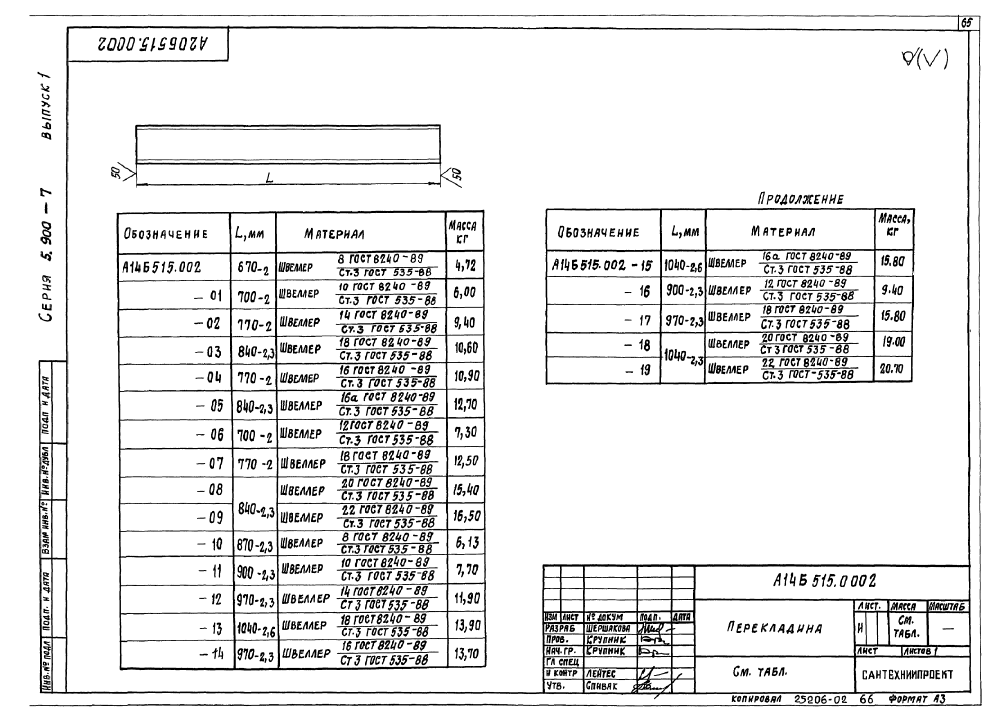 65
А20Б515.0002
Серия 5.900-7 выпуск 1
50
L
50
Обозначение L, мм Материал Масса кг
А14Б515.002 670-2 Швеллер 8 ГОСТ 8240-89 / Ст.3 ГОСТ 535-88 4,72
-01 700-2 Швеллер 10 ГОСТ 8240-89 / Ст.3 ГОСТ 535-88 6,00
-02 770-2 Швеллер 14 ГОСТ 8240-89 / Ст.3 ГОСТ 535-88 9,40
-03 840-2,3 Швеллер 18 ГОСТ 8240-89 / Ст.3 ГОСТ 535-88 10,60
-04 770-2 Швеллер 16 ГОСТ 8240-89 / Ст.3 ГОСТ 535-88 10,90
-05 840-2,3 Швеллер 16а ГОСТ 8240-89 / Ст.3 ГОСТ 535-88 12,70
-06 700-2 Швеллер 12 ГОСТ 8240-89 / Ст.3 ГОСТ 535-88 7,30
-07 770-2 Швеллер 18 ГОСТ 8240-89 / Ст.3 ГОСТ 535-88 12,50
-08 840-2,3 Швеллер 20 ГОСТ 8240-89 / Ст.3 ГОСТ 535-88 15,40
-09 Швеллер 22 ГОСТ 8240-89 / Ст.3 ГОСТ 535-88 16,50
-10 870-2,3 Швеллер 8 ГОСТ 8240-89 / Ст.3 ГОСТ 535-88 6,13
-11 900-2,3 Швеллер 10 ГОСТ 8240-89 / Ст.3 ГОСТ 535-88 7,70
-12 970-2,3 Швеллер 14 ГОСТ 8240-89 / Ст 3 ГОСТ 535-88 11,90
-13 1040-2,6 Швеллер 18 ГОСТ 8240-89 / Ст.3 ГОСТ 535-88 13,90
-14 970-2,3 Швеллер 16 ГОСТ 8240-89 / Ст 3 ГОСТ 535-88 13,70
Продолжение
Обозначение L, мм Материал Масса, кг
А14Б515.002-15 1040-2,6 Швеллер 16а ГОСТ 8240-89 / Ст.3 ГОСТ 535-88 15.80
-16 900-2,3 Швеллер 12 ГОСТ 8240-89 / Ст.3 ГОСТ 535-88 9.40
-17 970-2,3 Швеллер 18 ГОСТ 8240-89 / Ст.3 ГОСТ 535-88 15.80
-18 1040-2,3 Швеллер 20 ГОСТ 8240-89 / Ст 3 ГОСТ 535-88 19.00
-19 Швеллер 22 ГОСТ 8240-89 / Ст.3 ГОСТ-535-88 20.70
Инв. № подл Подп. и дата Взам инв. № Инв. № дубл Подп и дата
А14Б 515.0002
Изм Лист № докум Подп. Дата
Разраб Шершакова
Пров. Крупник
Нач. гр. Крупник
Гл спец
Н контр Лейтес
Утв. Спивак
Перекладина
Лист. Масса Масштаб
И См. табл. —
Лист Листов 1
См. табл.
Сантехниипроект
Копировал 25206-02 66 Формат А3